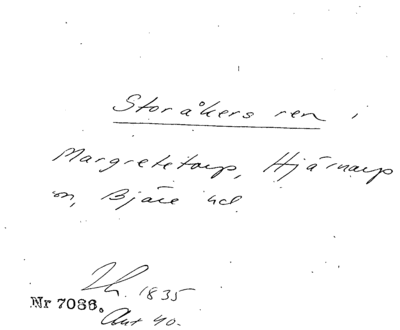 Storåkers ren i
Margretetorp, Hjärnarp
sn, Bjäre hd.
Lh. 1835
Nr 7086.
Ant 40.